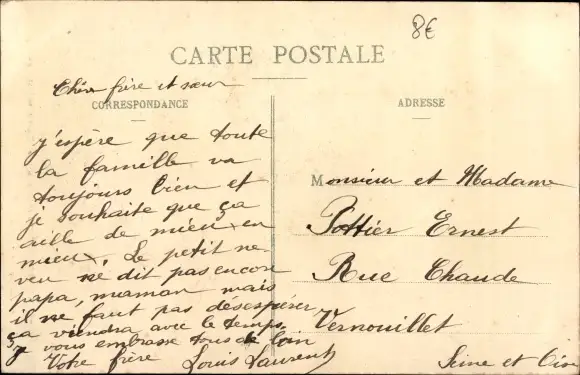 8€
CARTE POSTALE
Chèr frère et sœur
CORRESPONDANCE
ADRESSE
J'espère que toute
la famille va
toujours bien et
je souhaite que ça
aille de mieux en
mieux. Le petit ne
veu ne dit pas encore
papa, maman mais
il ne faut pas désespérer
ça viendra avec le temps.
Je vous embrasse tous de loin
Votre frère Louis Laurent
Monsieur et Madame
Pottier Ernest
Rue Chaude
Vernouillet
Seine et Oise